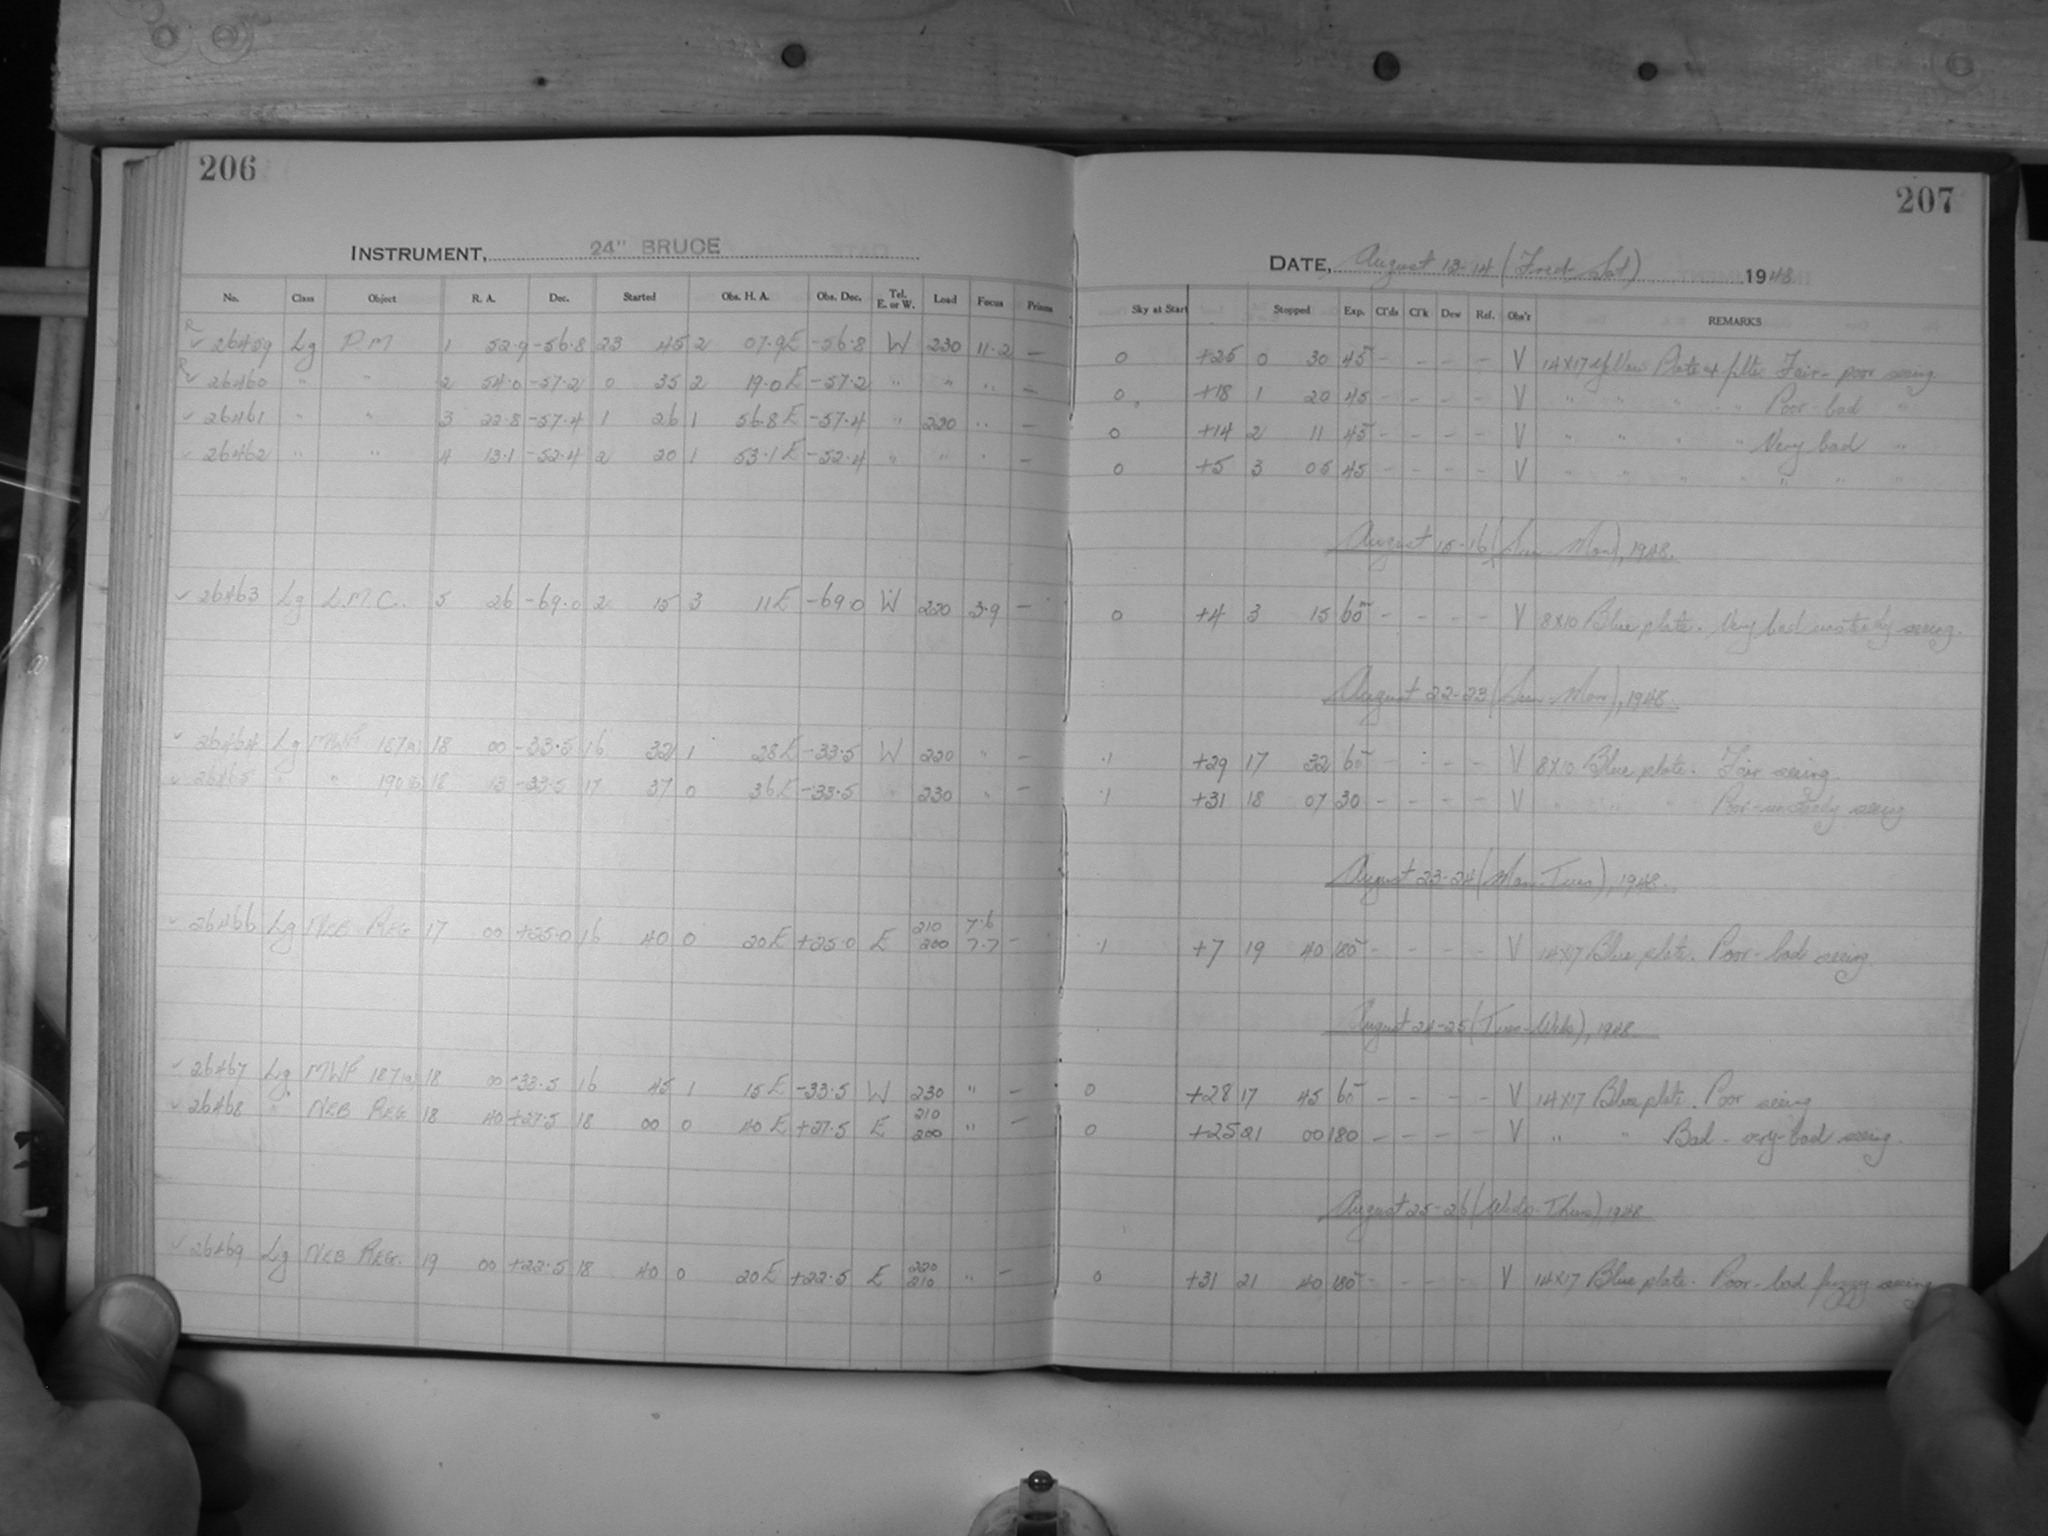 206
INSTRUMENT, 24" BRUCE
No. Class Object R. A. Dec. Started Obs. H. A. Obs. Dec. Tel. E. or W. Load Focus Prisms
R ✓ 26459 Lg P.M 1 52.9 -56.8 23 45 2 07.9E -56.8 W 230 11.2 —
R ✓ 26460 " " 2 54.0 -57.2 0 35 2 19.0 E -57.2 " " " —
✓ 26461 " " 3 22.8 -57.4 1 26 1 56.8 E -57.4 " 220 " —
✓ 26462 " " 4 13.1 -52.4 2 20 1 53.1 E -52.4 " " " —
✓ 26463 Lg L.M.C. 5 26 -69.0 2 15 3 11 E -69.0 W 230 3.9 —
✓ 26464 Lg MWF 187 18 00 -33.5 16 32 1 28 E -33.5 W 220 " —
✓ 26465 " " 190 18 13 -33.5 17 37 0 36 E -33.5 " 230 " —
✓ 26466 Lg NEB REG 17 00 +25.0 16 40 0 20 E +25.0 E 210 200 7.6 7.7 —
✓ 26467 Lg MWF 187 18 00 -33.5 16 45 1 15 E -33.5 W 230 " —
✓ 26468 " NEB REG 18 40 +27.5 18 00 0 40 E +27.5 E 210 200 " —
✓ 26469 Lg NEB REG. 19 00 +22.5 18 40 0 20 E +22.5 E 220 210 " —
207
DATE, August 13-14 (Fri-Sat) 1948
Sky at Start Stopped Exp. Cl'ds Cl'k Dew Ref. Obs'r REMARKS
0 +25 0 30 45 - - - - V 14x17 Yellow Plate & filter Fair-poor seeing
0 +18 1 20 45 - - - - V " " " " Poor-bad "
0 +14 2 11 45 - - - - V " " " " Very bad "
0 +5 3 05 45 - - - - V " " " " " " "
August 15-16 (Sun-Mon), 1948.
0 +4 3 15 60m - - - - V 8x10 Blue plate. Very bad unsteady seeing.
August 22-23 (Sun-Mon), 1948.
.1 +29 17 32 60 - - - - V 8x10 Blue plate. Fair seeing.
.1 +31 18 07 30 - - - - V " " " Poor-unsteady seeing
August 23-24 (Mon-Tues), 1948.
.1 +7 19 40 180 - - - - V 14x17 Blue plate. Poor-bad seeing.
August 24-25 (Tues-Weds), 1948.
0 +28 17 45 60 - - - - V 14x17 Blue plate. Poor seeing
0 +25 21 00 180 - - - - V " " Bad-very-bad seeing.
August 25-26 (Weds-Thurs), 1948
0 +31 21 40 180 - - - - V 14x17 Blue plate. Poor-bad fuzzy seeing